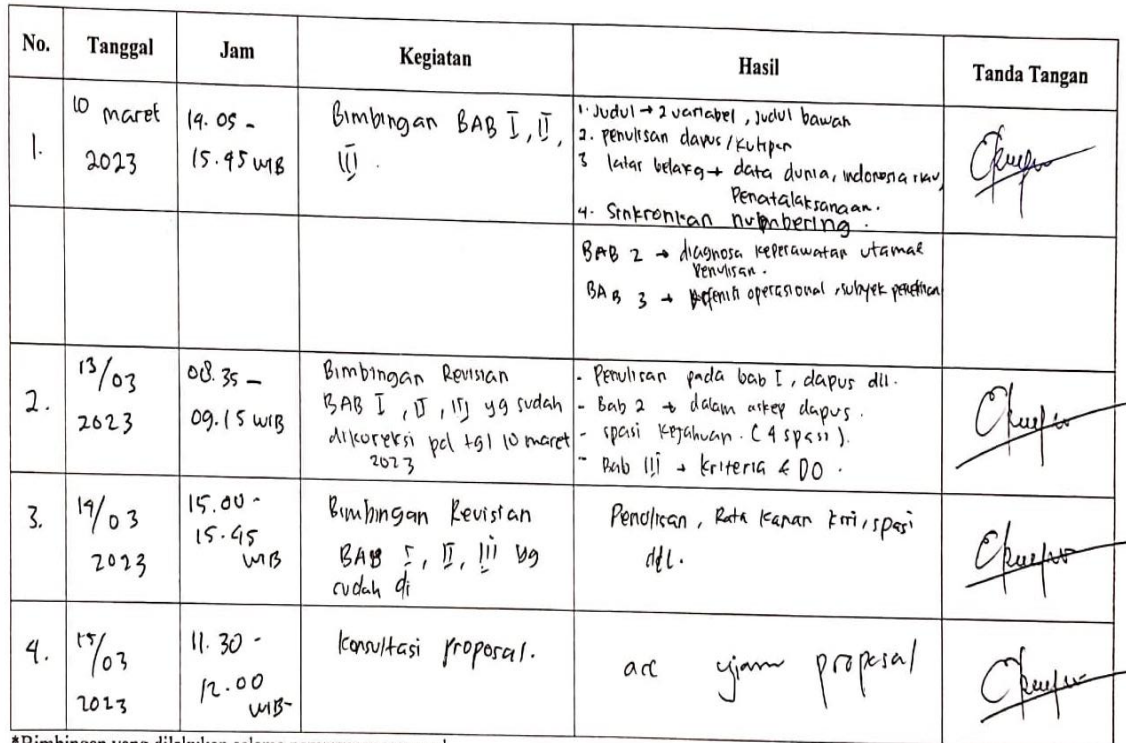 No. Tanggal Jam Kegiatan Hasil Tanda Tangan
1.
10 maret
2023
14.05 -
15.45 WIB
Bimbingan BAB I, II,
III.
1. Judul → 2 variabel, judul bawah
2. penulisan dapus/kutipan
3 latar belakg → data dunia, indonesia riau,
Penatalaksanaan.
4. Sinkronkan numbering.
BAB 2 → diagnosa keperawatan utama &
Penulisan.
BAB 3 → Definisi operasional, subyek penelitian
2.
13/03
2023
08.35 -
09.15 WIB
Bimbingan Revisian
BAB I, II, III yg sudah
dikoreksi pd tgl 10 maret
2023
- Penulisan pada bab I, dapus dll.
- Bab 2 → dalam askep dapus.
- spasi (4 spasi).
- Bab III → kriteria & DO.
3.
14/03
2023
15.00 -
15.45
WIB
Bimbingan Revisian
BAB I, II, III yg
sudah di
Penulisan, Rata kanan kiri, spasi
dll.
4.
15/03
2023
11.30 -
12.00
WIB-
Konsultasi proposal.
acc ujian proposal